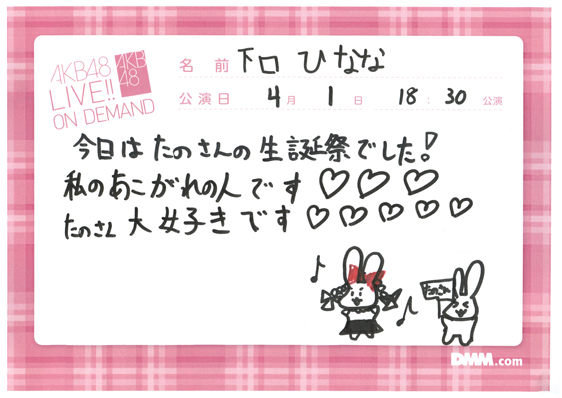 AKB48
LIVE!!
ON DEMAND
AKB
48
名前 下口ひなな
公演日 4月1日 18:30公演
今日はたのさんの生誕祭でした!
私のあこがれの人です♡♡♡
たのさん大好きです♡♡♡♡♡
たのさん
DMM.com